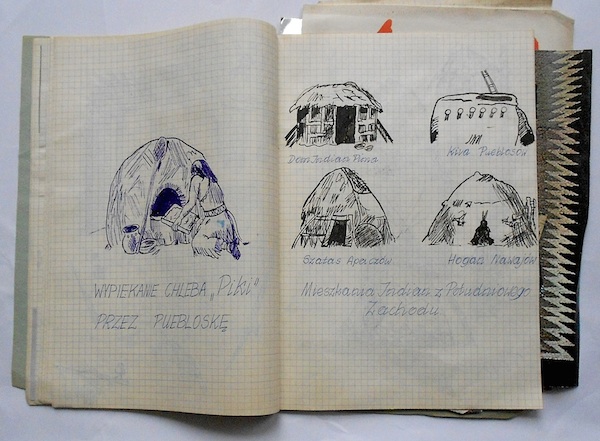 WYPIEKANE CHLEBA „Piki"
PRZEZ PUEBLOSKĘ
Dom Indian Pima
Kiva Pueblosów
Szałas Apaczów
Hogan Nawajów
Mieszkania Indian z Południowego
Zachodu.